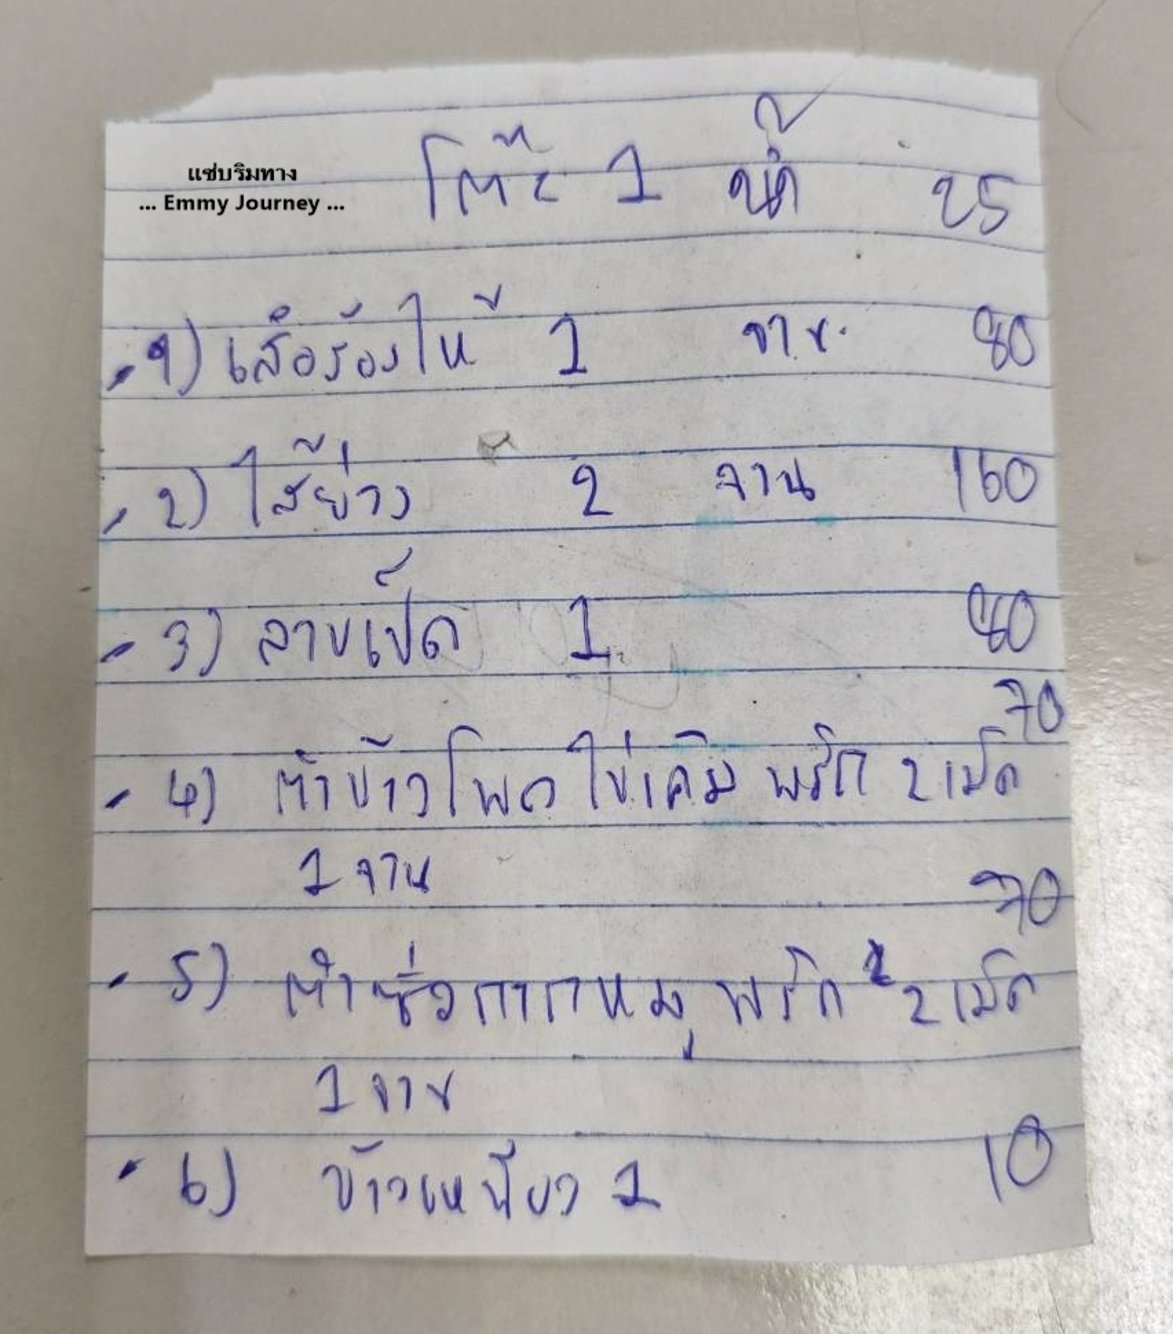 แซ่บริมทาง
... Emmy Journey ...
โต๊ะ 1 น้ำ 25
1) เสือร้องไห้ 1 จาน 80
2) ไส้ย่าง 2 จาน 160
3) ลาบเป็ด 1 80
70
4) ตำข้าวโพด ไข่เค็ม พริก 2 เม็ด
1 จาน
70
5) ตำซั่วกากหมู พริก 2 เม็ด
1 จาน
6) ข้าวเหนียว 1 10